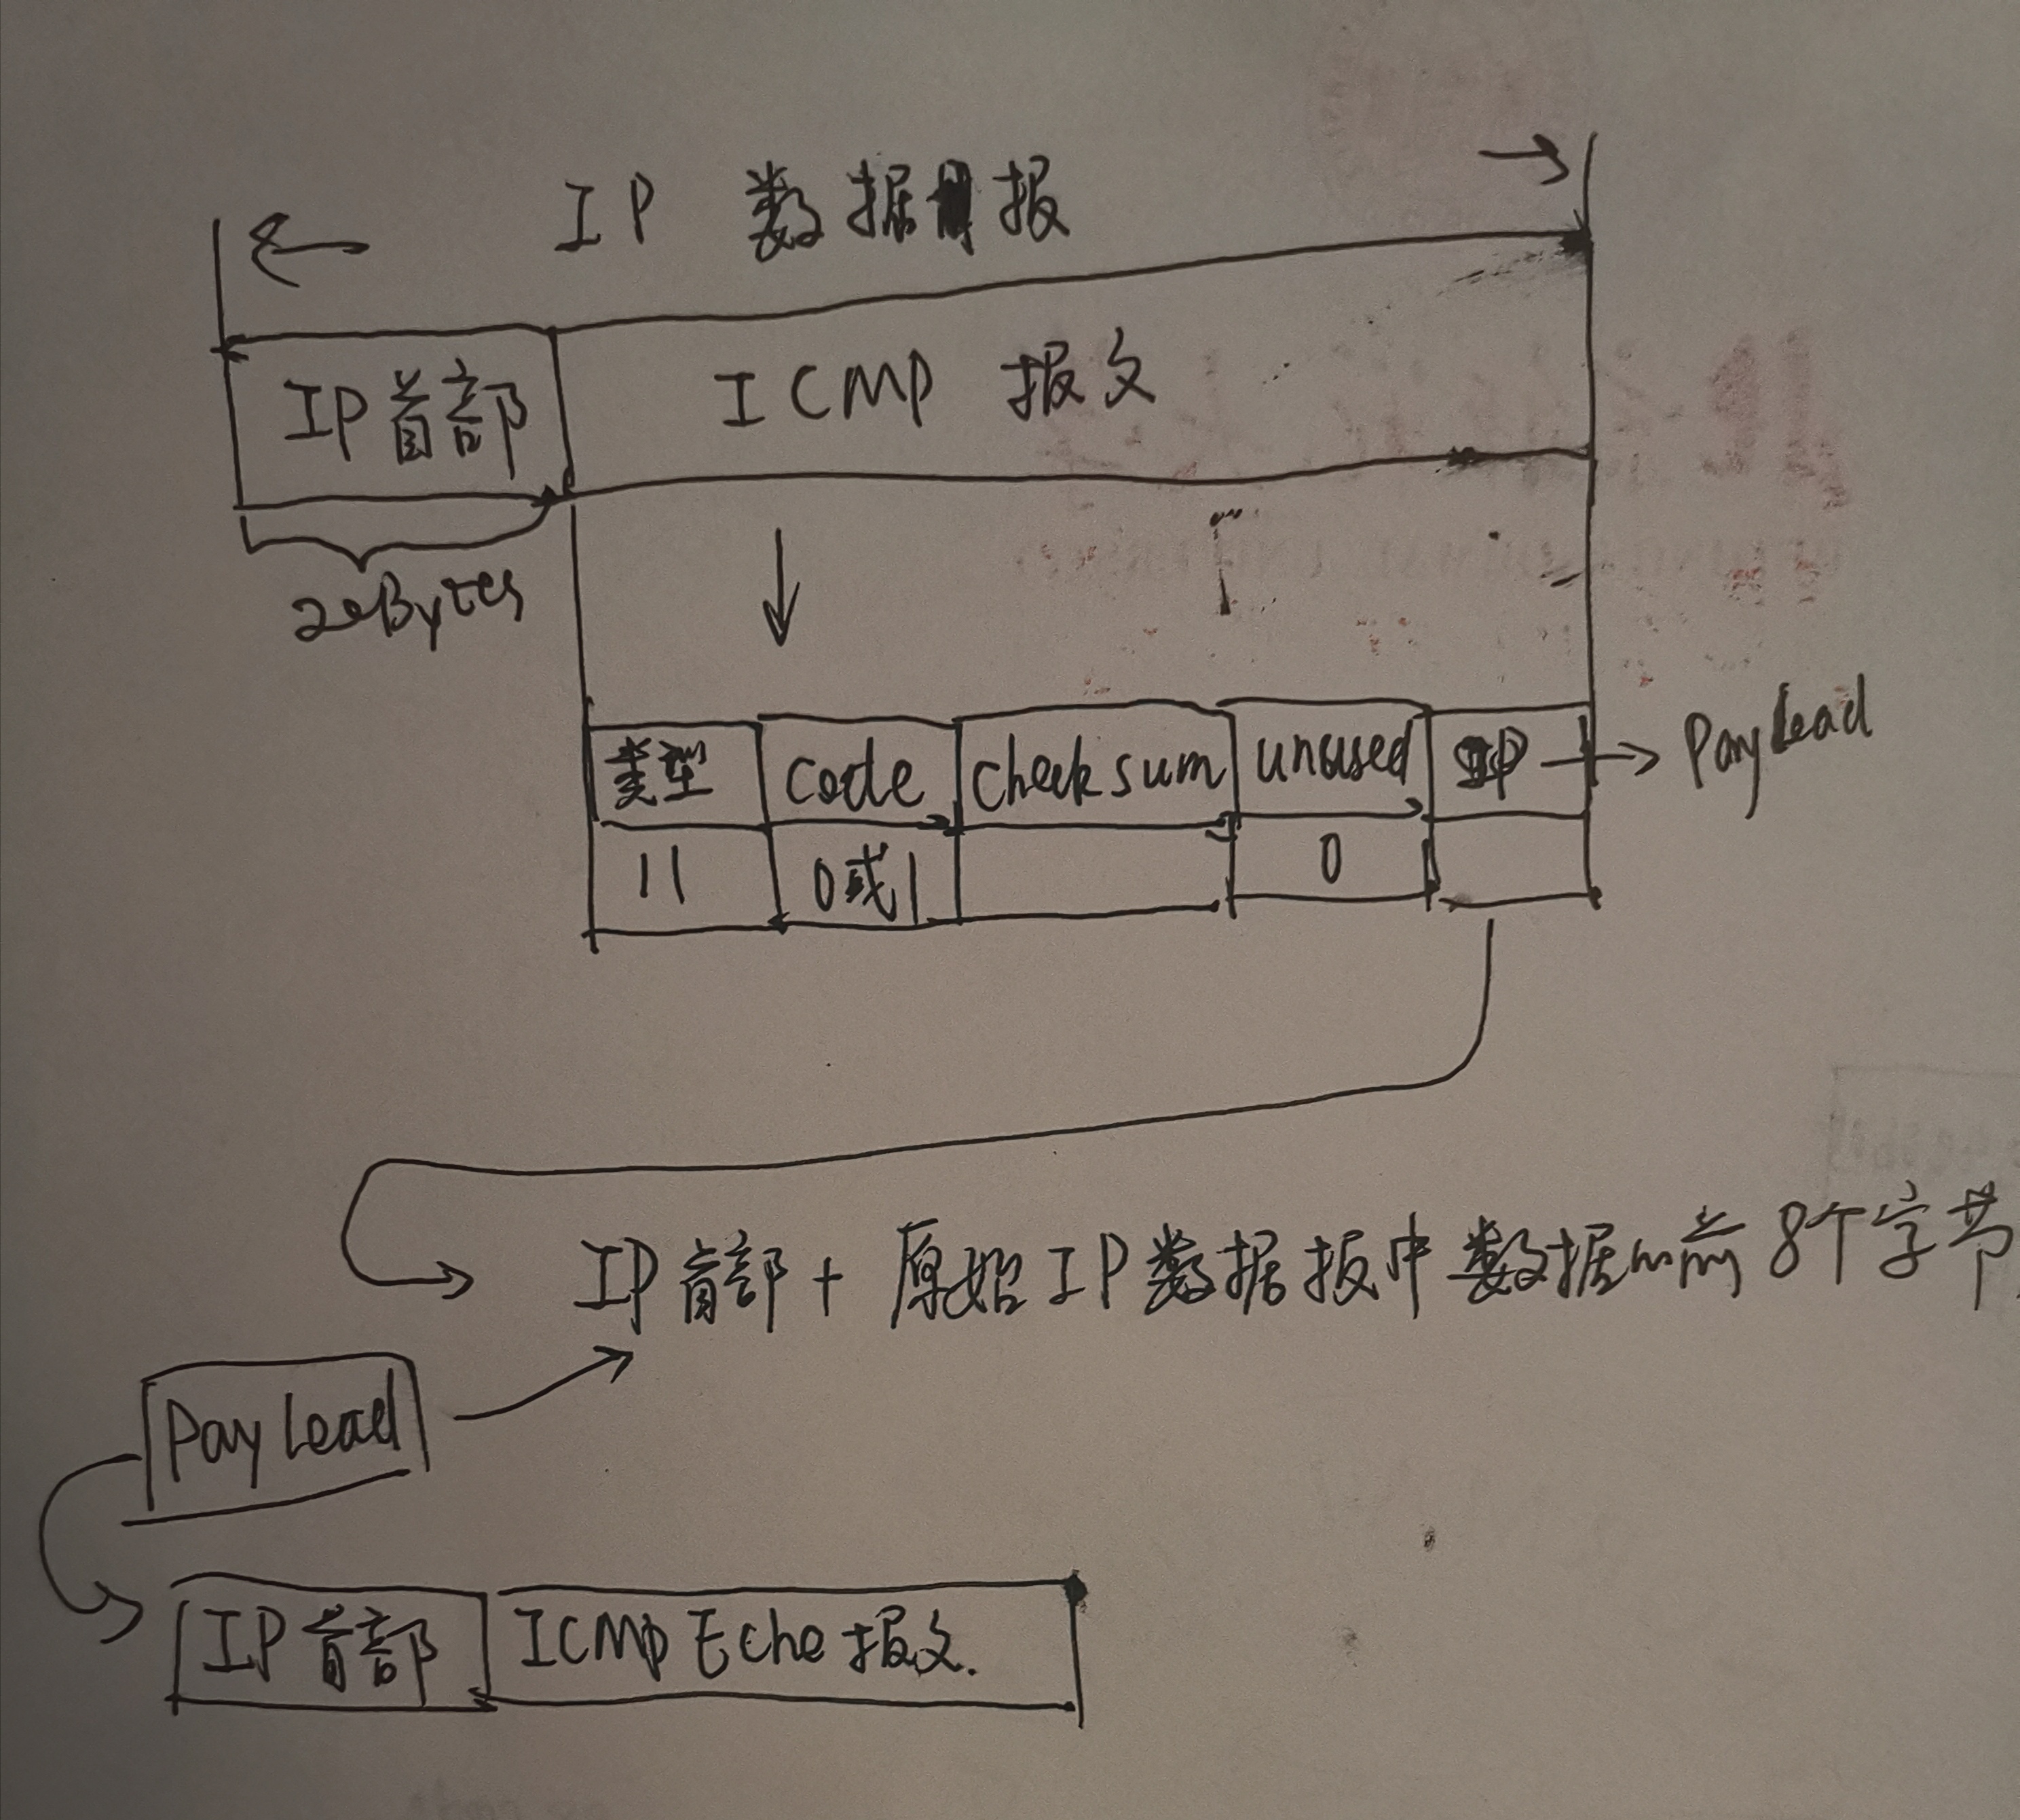 IP 数据报
IP首部
ICMP 报文
20Bytes
类型 code checksum unused IP → PayLoad
11 0或1 0
IP首部 + 原始IP数据报中数据的前8个字节.
PayLoad
IP首部 ICMP Echo 报文.